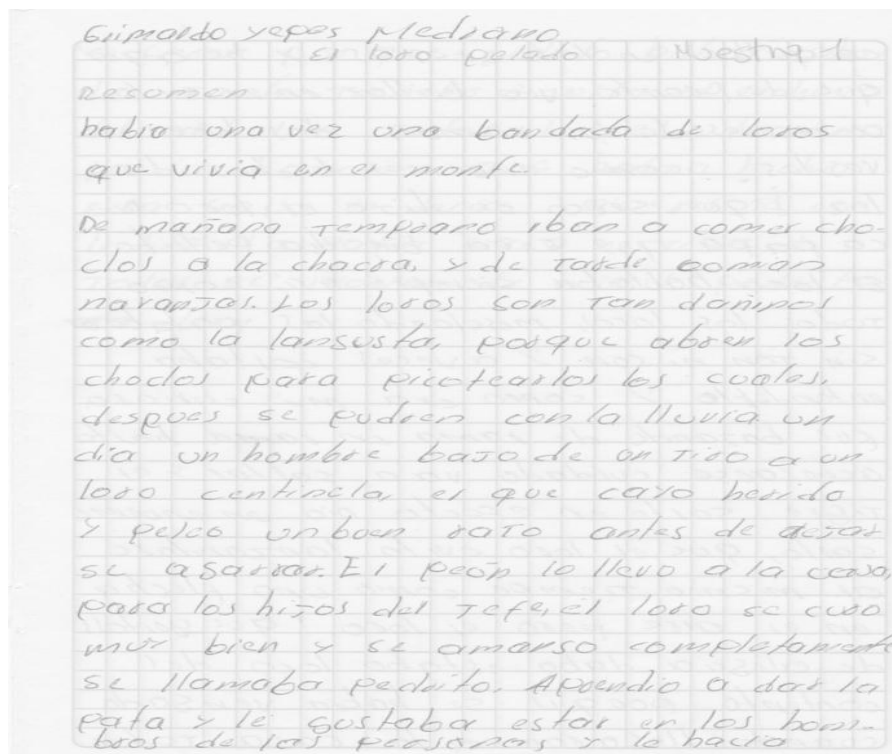 Grimaldo yepes Medrano
El loro pelado Muestra 1
Resumen
habia una vez una bandada de loros
que vivia en el monte
De mañana Temprano iban a comer cho-
clos a la chacra, y de Tarde comian
naranjas. Los loros son Tan dañinos
como la langusta, porque abren los
choclos para picotearlos los cuales,
despues se pudren con la lluvia un
dia un hombre bajo de un Tiro a un
loro centinela, el que cayo herido
y peleo un buen raTo antes de dejar
se agarrar. El peón lo llevo a la casa,
para los hijos del Jefe, el loro se curo
muy bien y se amanso completamente
se llamaba pedrito. Aprendio a dar la
pata y le gustaba estar en los hom-
bros de las personas y le hacia